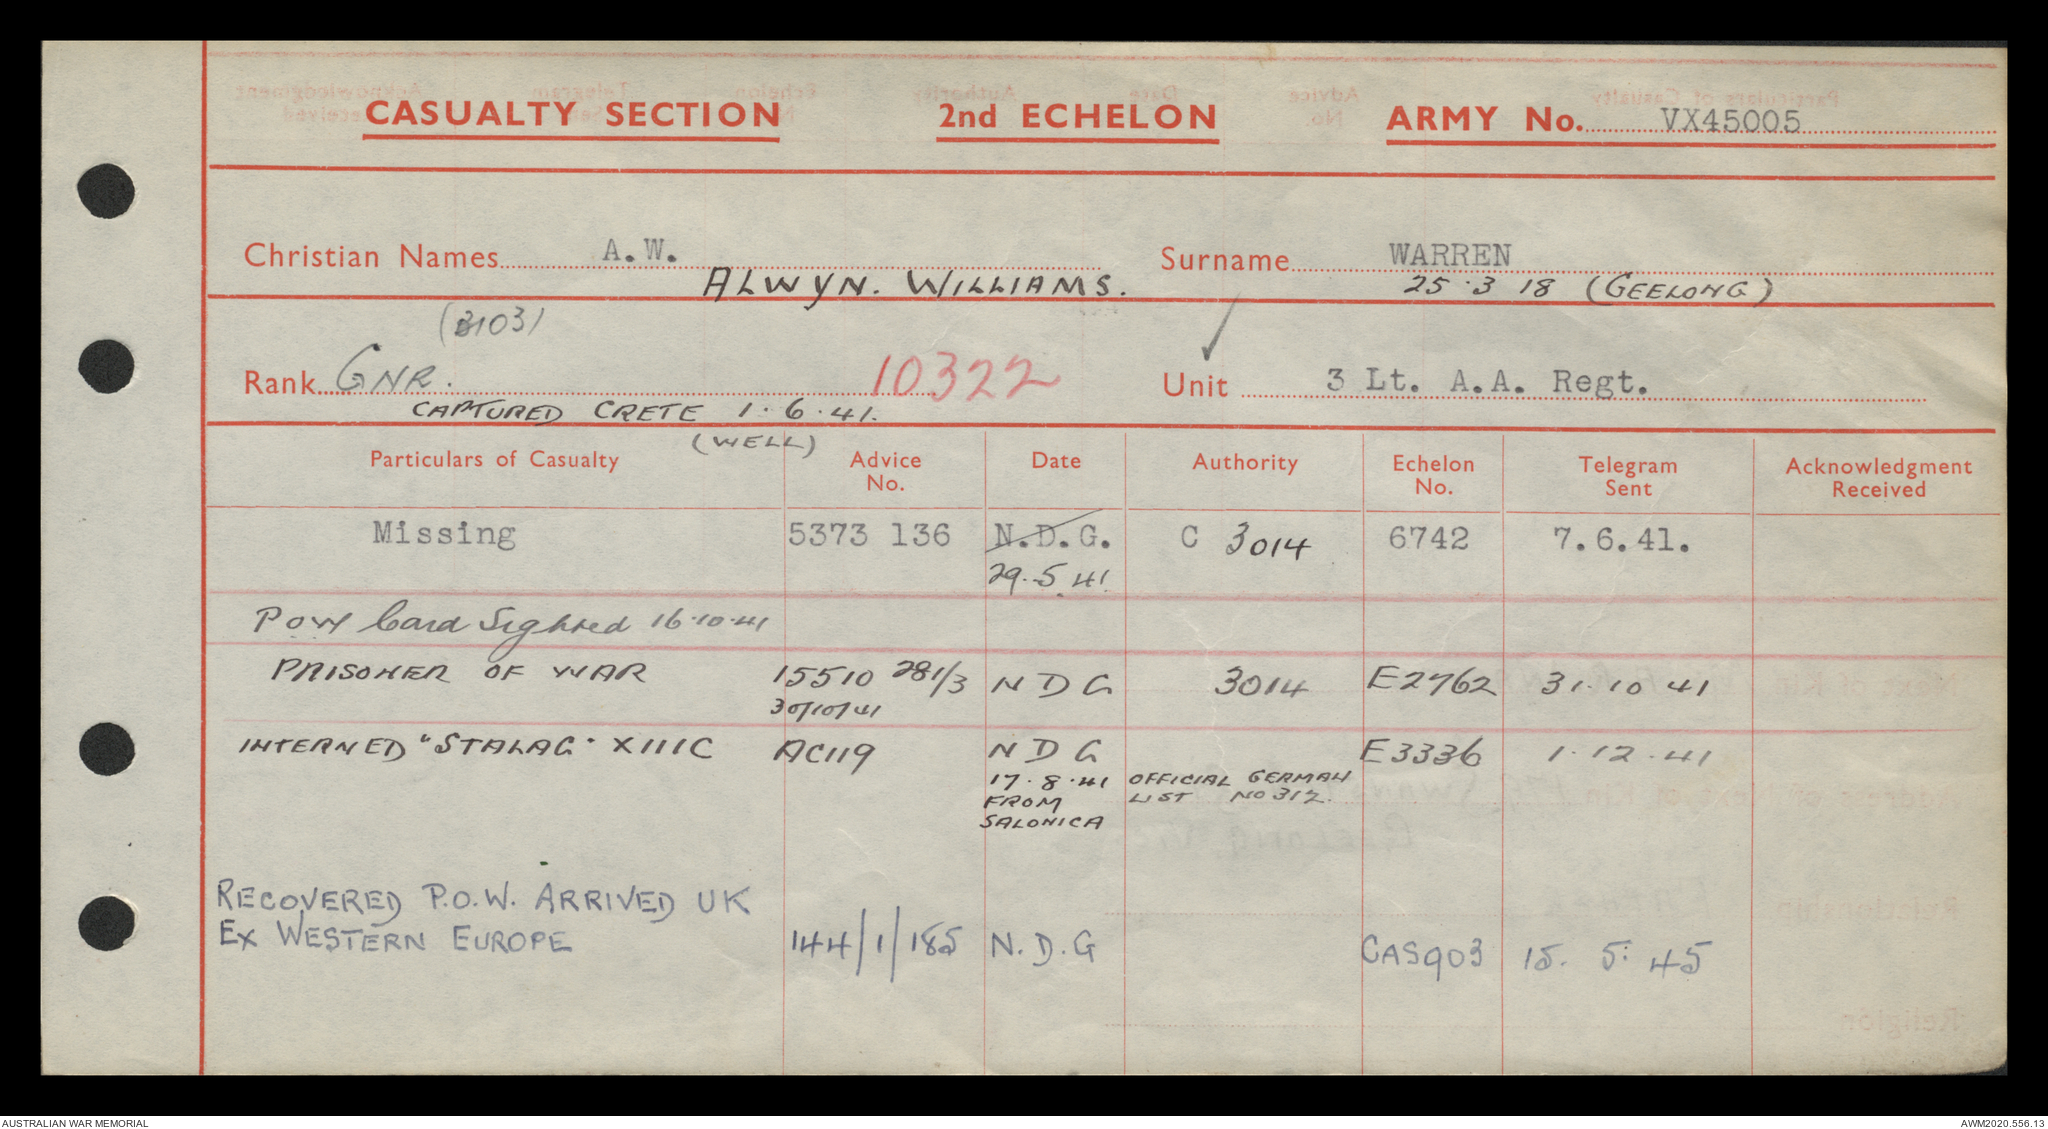 CASUALTY SECTION 2nd ECHELON ARMY No. VX45005
Christian Names A.W. Surname WARREN
ALWYN. WILLIAMS. 25.3 18 (GEELONG)
Rank GNR. 10322 Unit 3 Lt. A.A. Regt.
CAPTURED CRETE 1.6.41.
(WELL)
Particulars of Casualty Advice No. Date Authority Echelon No. Telegram Sent Acknowledgment Received
Missing 5373 136 N.D.G. C 3014 6742 7.6.41.
29.5.41.
POW Card Sighted 16.10.41
PRISONER OF WAR 15510 281/3 N D G 3014 E2762 31.10 41
30/10/41
INTERNED "STALAG" XIIIC AC119 N D G E3336 1.12.41
17.8.41 OFFICIAL GERMAN
FROM LIST NO 317.
SALONICA
RECOVERED P.O.W. ARRIVED UK
EX WESTERN EUROPE 144/1/185 N.D.G CAS903 15. 5: 45
AUSTRALIAN WAR MEMORIAL AWM2020.556.13